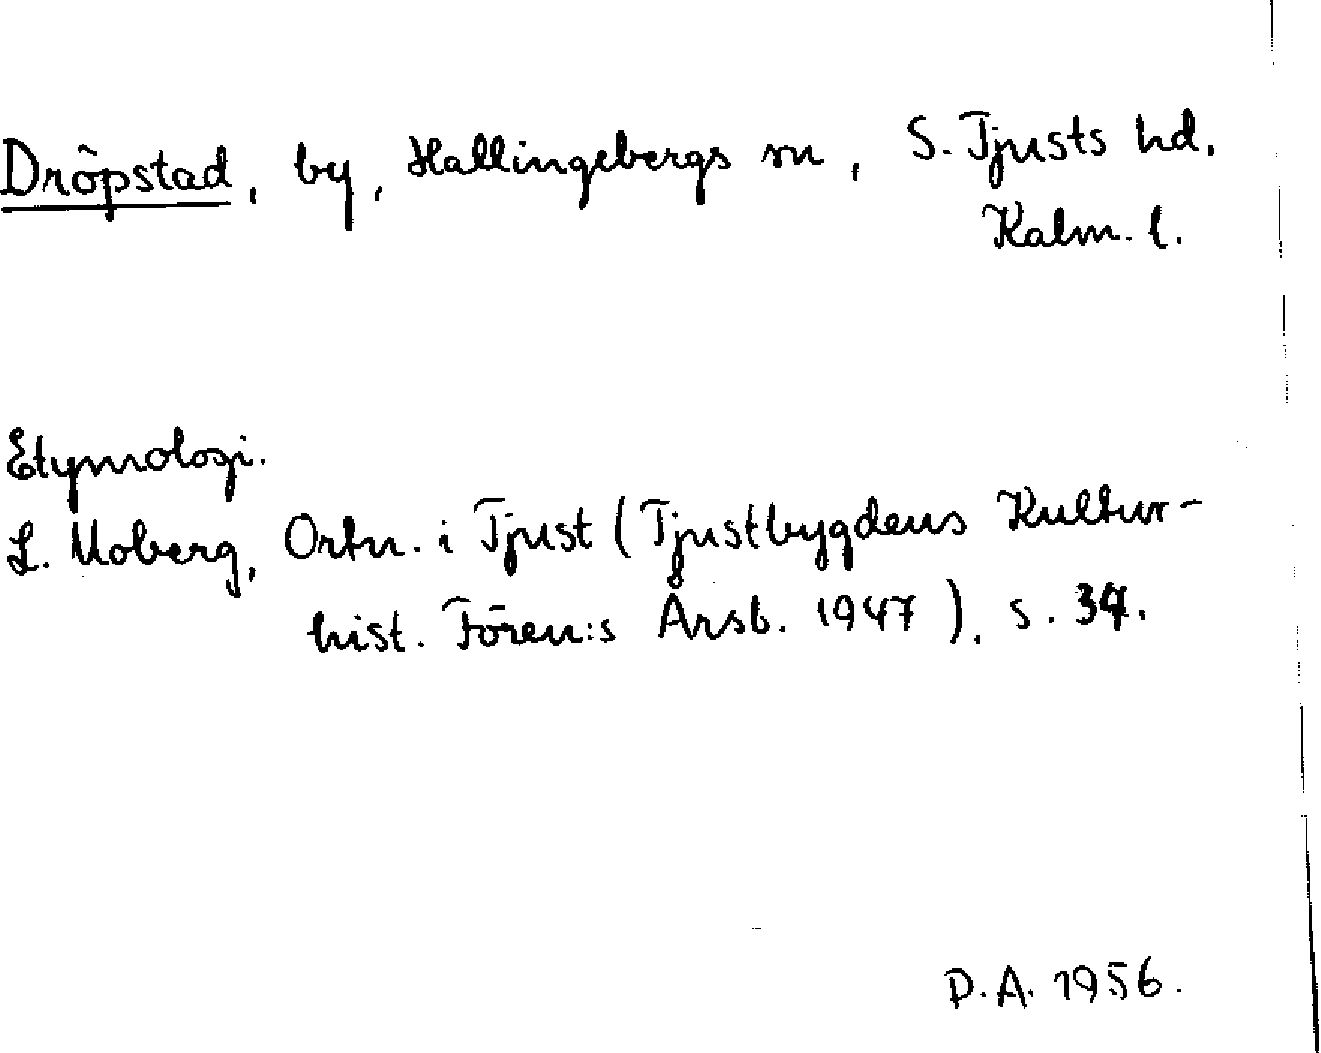 Dröpstad, by, Hallingebergs sn, S. Tjusts hd.
Kalm. l.
Etymologi.
L. Moberg, Ortn. i Tjust (Tjustbygdens Kultur-
hist. Fören:s Årsb. 1947), s. 34.
D.A. 1956.